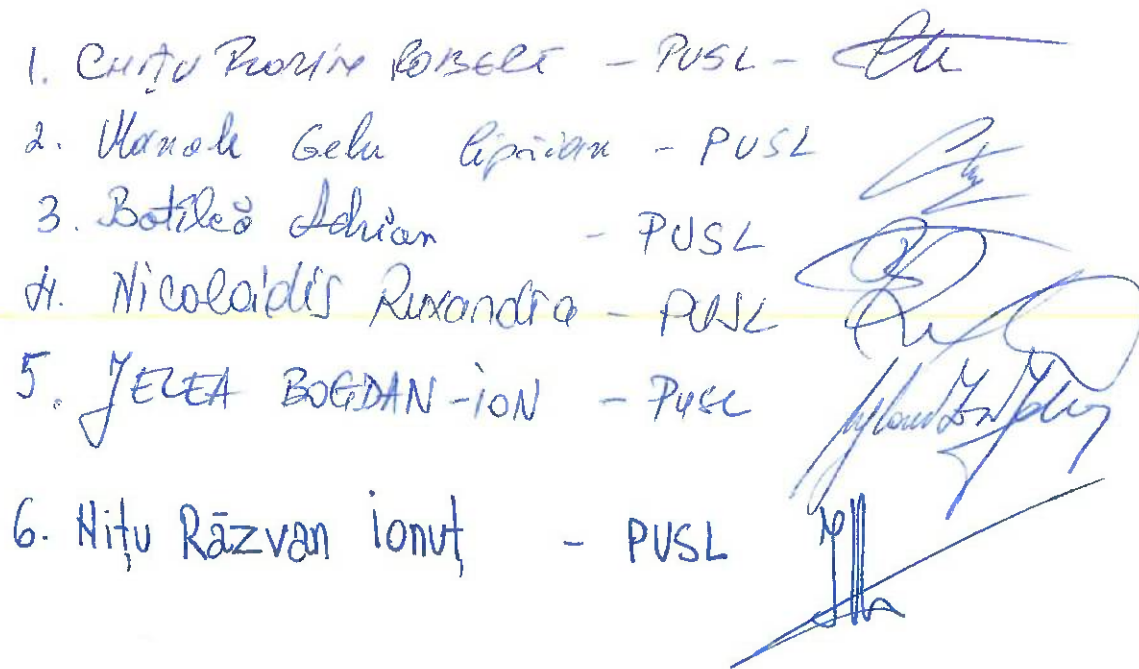 1. Chițu Florin Robert - PUSL -
2. Manole Gelu Ciprian - PUSL
3. Botilcă Adrian - PUSL
4. Nicolaidis Ruxandra - PUSL
5. JELEA BOGDAN-ION - PUSL
6. Nițu Răzvan Ionuț - PUSL